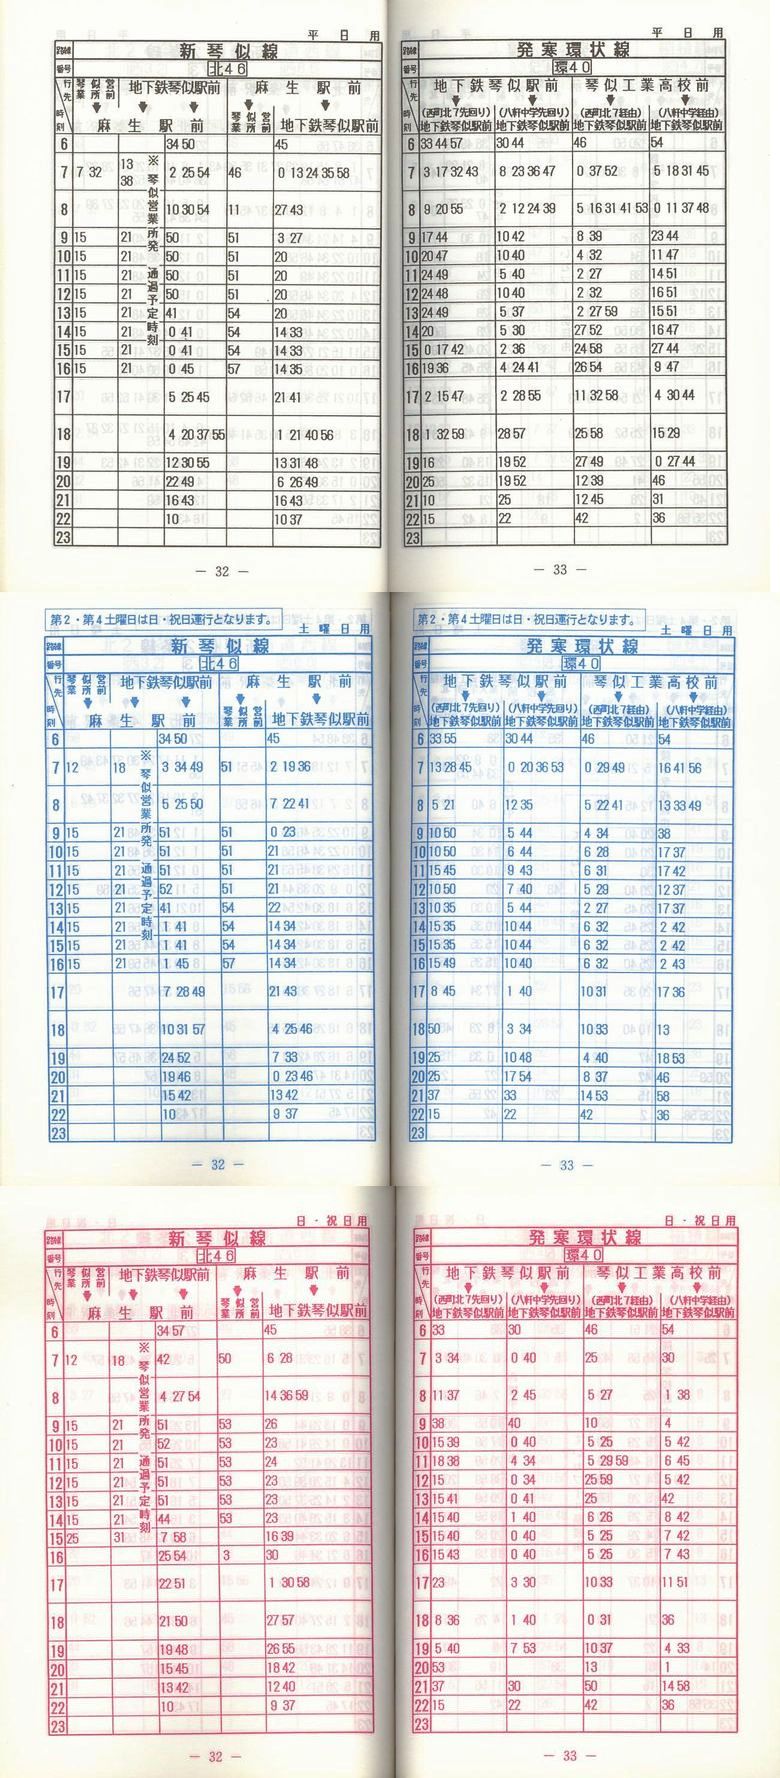 平日用
路線 新琴似線
番号 北46
行先 琴似営業所前 地下鉄琴似駅前 麻生駅前
時刻 麻生駅前 琴似営業所前 地下鉄琴似駅前
※琴似営業所発 通過予定時刻
6 34 50 45
7 7 32 13 38 2 25 54 46 0 13 24 35 58
8 10 30 54 11 27 43
9 15 21 50 51 3 27
10 15 21 50 51 20
11 15 21 50 51 20
12 15 21 50 51 20
13 15 21 41 54 20
14 15 21 0 41 54 14 33
15 15 21 0 41 54 14 33
16 15 21 0 45 57 14 35
17 5 25 45 21 41
18 4 20 37 55 1 21 40 56
19 12 30 55 13 31 48
20 22 49 6 26 49
21 16 43 16 43
22 10 10 37
23
― 32 ―
平日用
路線 発寒環状線
番号 環40
行先 地下鉄琴似駅前 琴似工業高校前
(西町北7先回り) (八軒中学先回り) (西町北7経由) (八軒中学経由)
時刻 地下鉄琴似駅前 地下鉄琴似駅前 地下鉄琴似駅前 地下鉄琴似駅前
6 33 44 57 30 44 46 54
7 3 17 32 43 8 23 36 47 0 37 52 5 18 31 45
8 9 20 55 2 12 24 39 5 16 31 41 53 0 11 37 48
9 17 44 10 42 8 39 23 44
10 20 47 10 40 4 32 11 47
11 24 49 5 40 2 27 14 51
12 24 48 10 40 2 32 16 51
13 24 49 5 37 2 27 59 15 51
14 20 5 30 27 52 16 47
15 0 17 42 2 36 24 58 27 44
16 19 36 4 24 41 26 54 9 47
17 2 15 47 2 28 55 11 32 58 4 30 44
18 1 32 59 28 57 25 58 15 29
19 16 19 52 27 49 0 27 44
20 25 19 52 12 39 46
21 10 25 12 45 31
22 15 22 42 36
23
― 33 ―
第2・第4土曜日は日・祝日運行となります。
土曜日用
路線 新琴似線
番号 北46
行先 琴似営業所前 地下鉄琴似駅前 麻生駅前
時刻 麻生駅前 琴似営業所前 地下鉄琴似駅前
※琴似営業所発 通過予定時刻
6 34 50 45
7 12 18 3 34 49 51 2 19 36
8 5 25 50 7 22 41
9 15 21 51 51 0 23
10 15 21 51 51 21
11 15 21 51 51 21
12 15 21 52 51 21
13 15 21 41 54 22
14 15 21 1 41 54 14 34
15 15 21 1 41 54 14 34
16 15 21 1 45 57 14 34
17 7 28 49 21 43
18 10 31 57 4 25 46
19 24 52 7 33
20 19 46 0 23 46
21 15 42 13 42
22 10 9 37
23
― 32 ―
第2・第4土曜日は日・祝日運行となります。
土曜日用
路線 発寒環状線
番号 環40
行先 地下鉄琴似駅前 琴似工業高校前
(西町北7先回り) (八軒中学先回り) (西町北7経由) (八軒中学経由)
時刻 地下鉄琴似駅前 地下鉄琴似駅前 地下鉄琴似駅前 地下鉄琴似駅前
6 33 55 30 44 46 54
7 13 28 45 0 20 36 53 0 29 49 16 41 56
8 5 21 12 35 5 22 41 13 33 49
9 10 50 5 44 4 34 38
10 10 50 6 44 6 28 17 37
11 15 45 9 43 6 31 17 42
12 10 50 7 40 5 29 12 37
13 10 35 5 44 2 27 17 37
14 15 35 10 44 6 32 2 42
15 15 35 10 44 6 32 2 42
16 15 49 10 40 6 32 2 43
17 8 45 1 40 10 31 17 36
18 50 3 34 10 33 13
19 25 10 48 4 40 18 53
20 25 17 54 8 37 46
21 37 33 14 53 58
22 15 22 42 36
23
― 33 ―
日・祝日用
路線 新琴似線
番号 北46
行先 琴似営業所前 地下鉄琴似駅前 麻生駅前
時刻 麻生駅前 琴似営業所前 地下鉄琴似駅前
※琴似営業所発 通過予定時刻
6 34 57 45
7 12 18 42 50 6 28
8 4 27 54 14 36 59
9 15 21 51 53 26
10 15 21 52 53 23
11 15 21 51 53 24
12 15 21 51 53 23
13 15 21 51 53 23
14 15 21 44 53 23
15 25 31 7 58 16 39
16 25 54 3 30
17 22 51 1 30 58
18 21 50 27 57
19 19 48 26 55
20 15 45 18 42
21 13 42 12 40
22 10 9 37
23
― 32 ―
日・祝日用
路線 発寒環状線
番号 環40
行先 地下鉄琴似駅前 琴似工業高校前
(西町北7先回り) (八軒中学先回り) (西町北7経由) (八軒中学経由)
時刻 地下鉄琴似駅前 地下鉄琴似駅前 地下鉄琴似駅前 地下鉄琴似駅前
6 33 30 46 54
7 3 34 0 40 25 30
8 11 37 2 45 5 27 1 38
9 38 40 10 4
10 15 39 0 40 5 25 5 42
11 18 38 4 34 5 29 59 6 45
12 15 0 34 25 59 5 42
13 15 41 0 41 25 42
14 15 40 1 40 6 26 8 42
15 15 40 0 40 5 25 7 42
16 15 43 0 40 5 25 7 43
17 23 3 30 10 33 11 51
18 8 36 1 40 0 31 36
19 5 40 7 53 10 37 4 33
20 53 13 1
21 37 30 50 14 58
22 15 22 42 36
23
― 33 ―